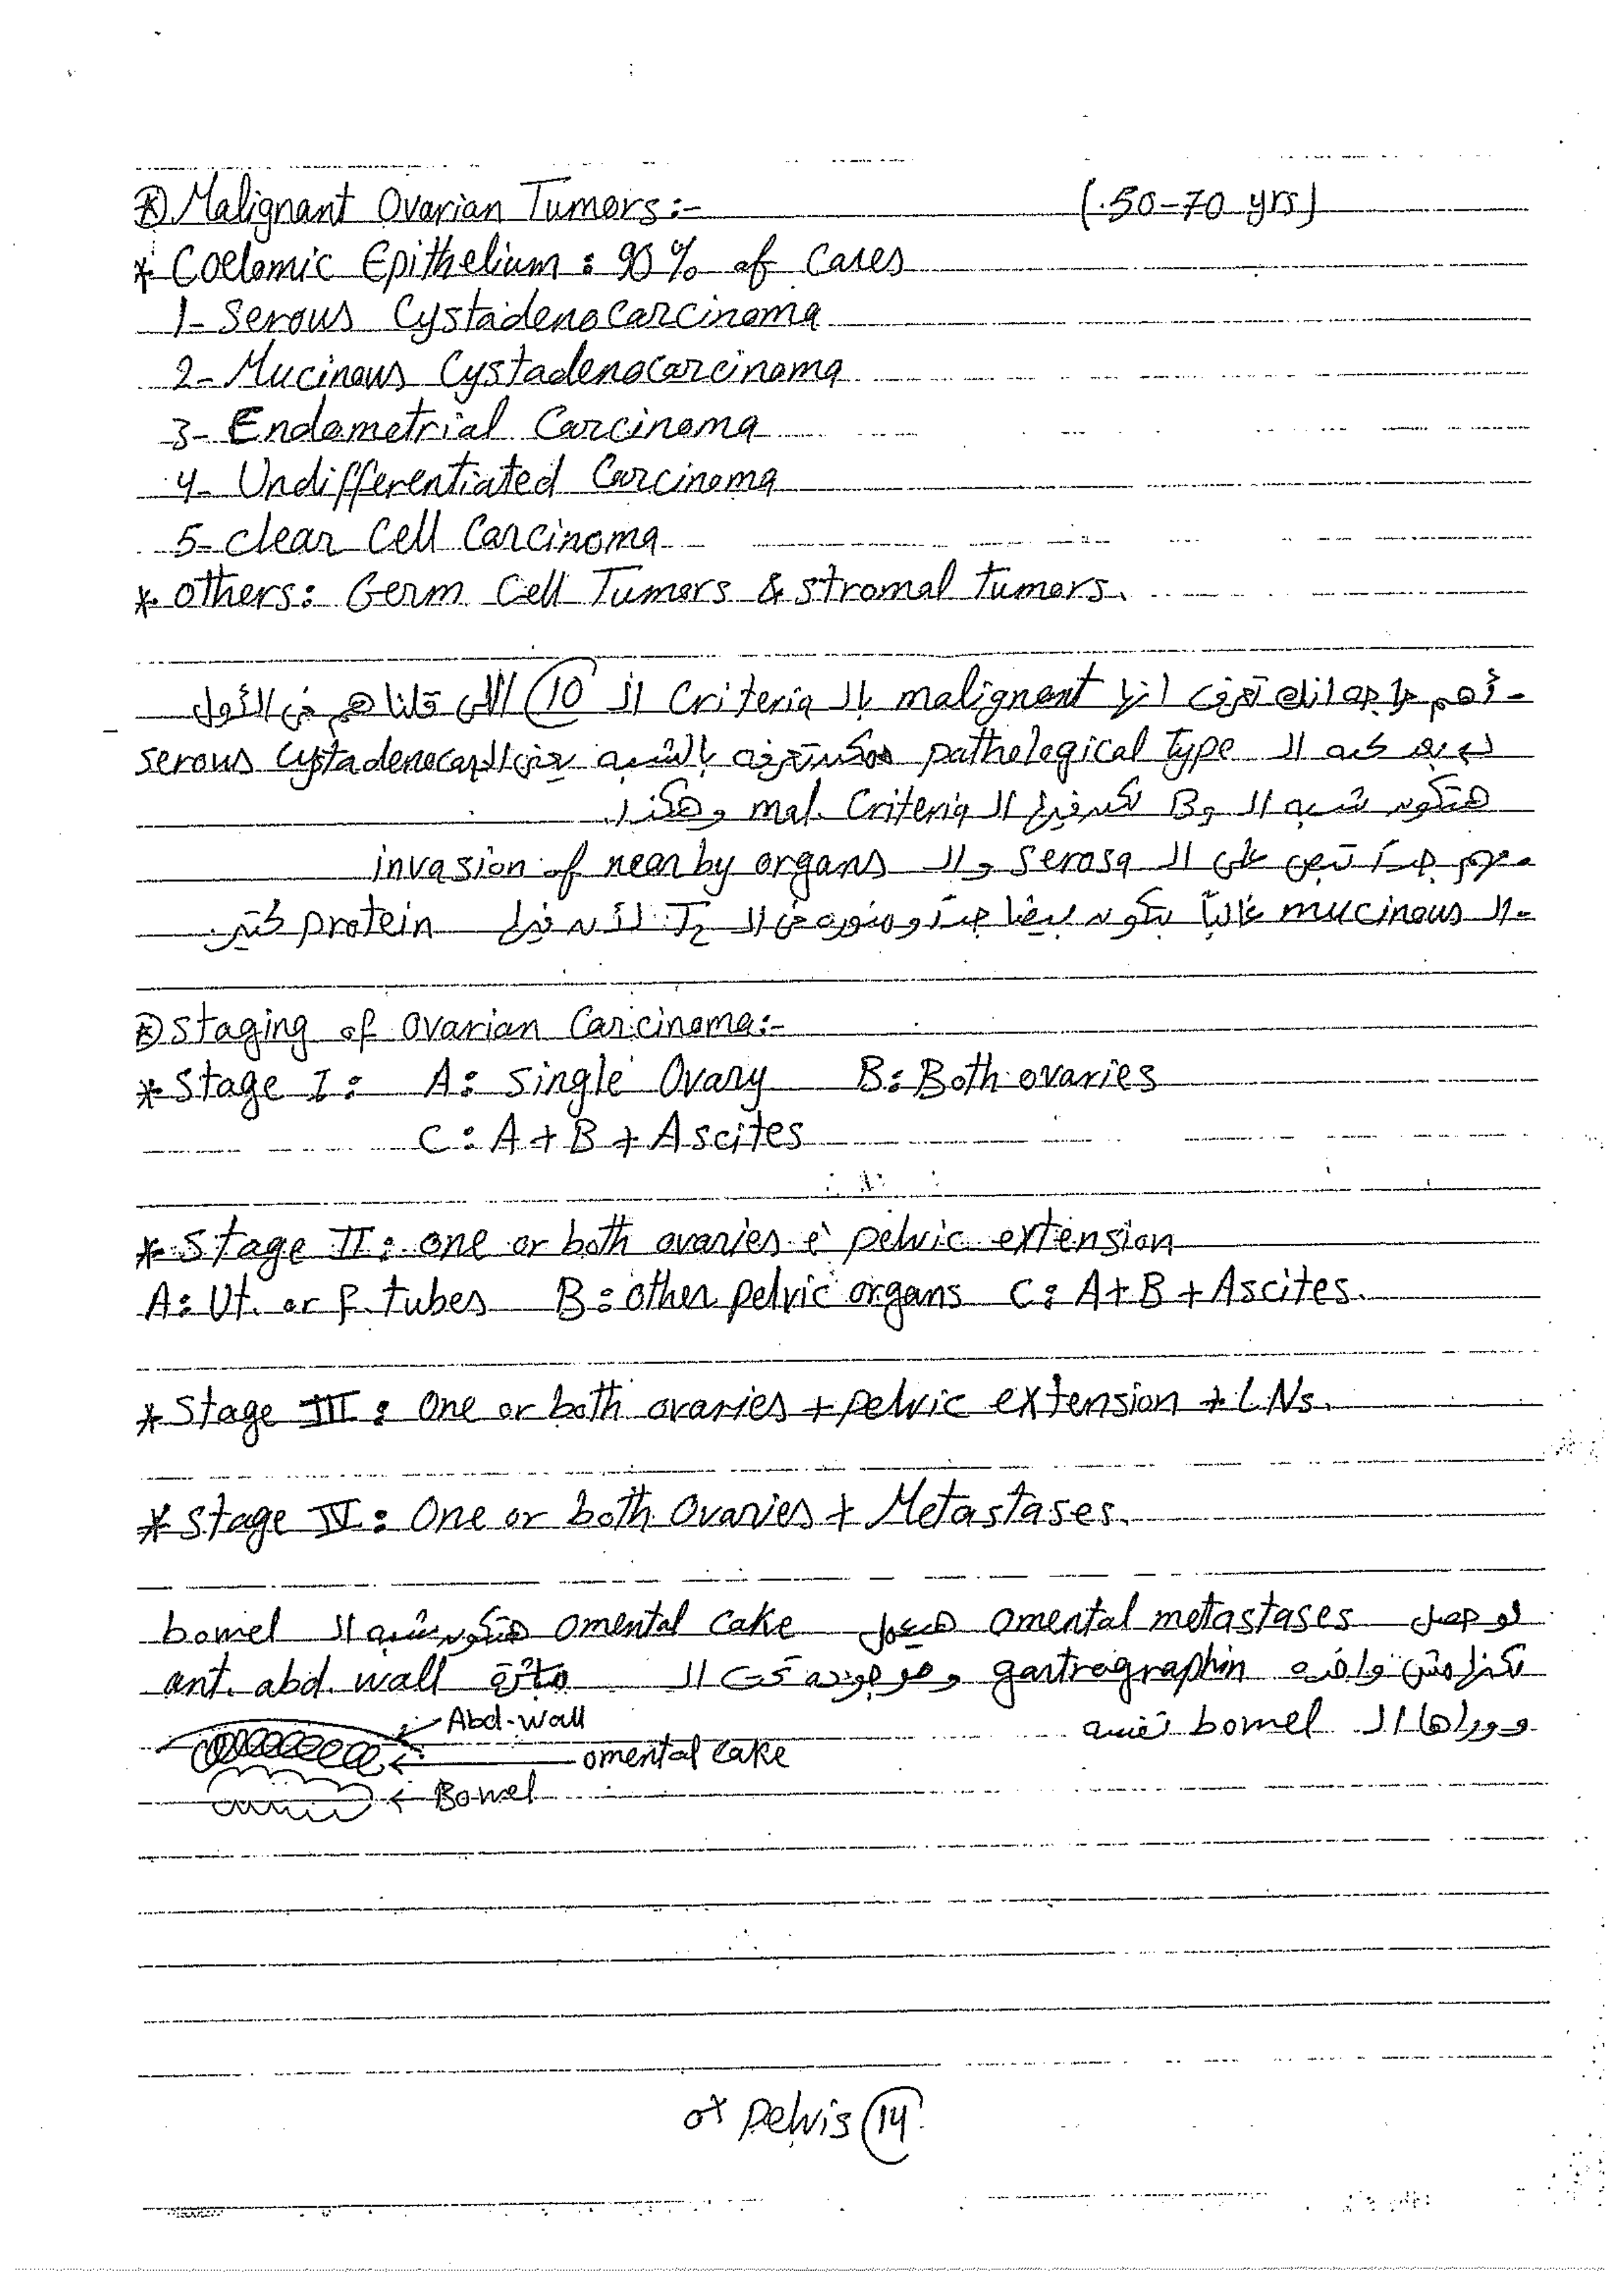 ⊛ Malignant Ovarian Tumors:- (50-70 yrs)
* Coelomic Epithelium : 90% of Cases
1- Serous Cystadenocarcinoma
2- Mucinous Cystadenocarcinoma
3- Endometrial Carcinoma
4- Undifferentiated Carcinoma
5- Clear Cell Carcinoma
* Others: Germ Cell Tumors & Stromal Tumors.
- أهم حاجه انك تعرف انها malignant بالـ Criteria الـ 10 اللى قلناهم فى الأول
بعد كده الـ pathological Type ممكن تعرفه بالشبه يعنى الـ serous Cystadenocar
هتكون شبه الـ B9 لكن فيها الـ mal. Criteria وهكذا.
مهم جداً تبص على الـ Serosa والـ invasion of near by organs
- الـ mucinous غالباً بتكون بيضا جداً ومنوره فى الـ T2 لأن فيها protein كتير.
⊛ Staging of Ovarian Carcinoma:-
* Stage I : A: Single Ovary B: Both ovaries
C: A + B + Ascites
* Stage II : one or both ovaries c̄ pelvic extension
A: Ut. or F. tubes B: other pelvic organs C: A+B + Ascites.
* Stage III : One or both ovaries + pelvic extension + LNs.
* Stage IV : One or both Ovaries + Metastases.
لو حصل omental metastases هيعمل omental cake هتكون شبه الـ bowel
لكنها مش واخده gastrographin وموجوده تحت الـ ant. abd. wall مباشرة
ووراها الـ bowel نفسه
Abd-wall
omental cake
Bowel
pelvis 14